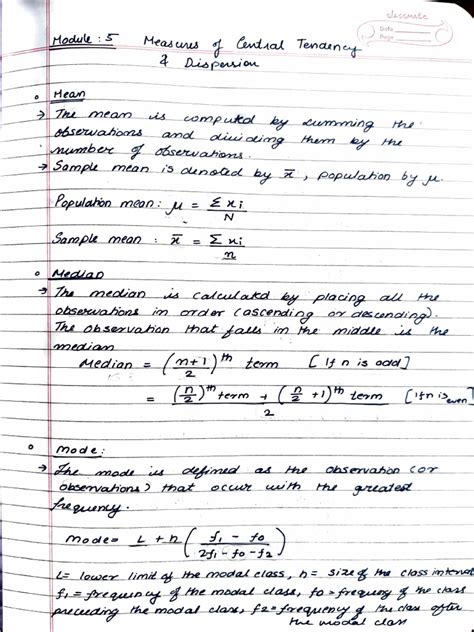 classmate
Date
Page
Module : 5 Measures of Central Tendency
& Dispersion
Mean
→ The mean is computed by summing the
observations and dividing them by the
number of observations.
→ Sample mean is denoted by x̄, population by μ.
Population mean: μ = Σxi / N
Sample mean : x̄ = Σxi / n
Median
→ The median is calculated by placing all the
observations in order (ascending or descending).
The observation that falls in the middle is the
median
Median = ((n+1)/2)th term [If n is odd]
= ((n/2)th term + (n/2 + 1)th term) / 2 [If n is even]
Mode:
→ The mode is defined as the observation (or
observations) that occur with the greatest
frequency.
Mode = L + h ((f1 - f0) / (2f1 - f0 - f2))
L= lower limit of the modal class, h = size of the class interval
f1 = frequency of the modal class, f0 = frequency of the class
preceding the modal class, f2 = frequency of the class after
the modal class